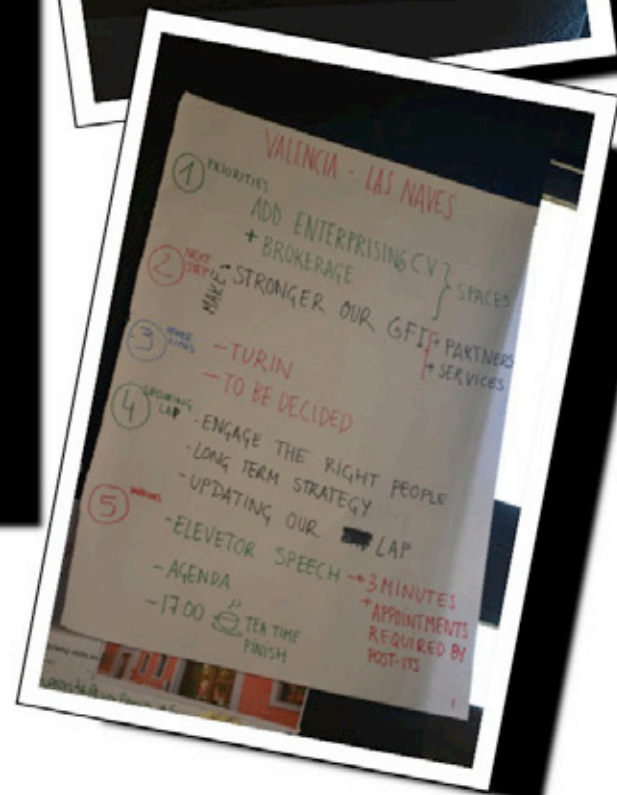 VALENCIA - LAS NAVES
1 PRIORITIES
ADD ENTERPRISING CV
+ BROKERAGE
} SPACES
2 NEXT STEP
MAKE STRONGER OUR GFI
+ PARTNERS
+ SERVICES
3
- TURIN
- TO BE DECIDED
4 LAP
- ENGAGE THE RIGHT PEOPLE
- LONG TERM STRATEGY
- UPDATING OUR LAP
5
- ELEVETOR SPEECH → 3 MINUTES
+ APPOINTMENTS
REQUIRED BY
POST-ITS
- AGENDA
- 17.00 TEA TIME
FINISH